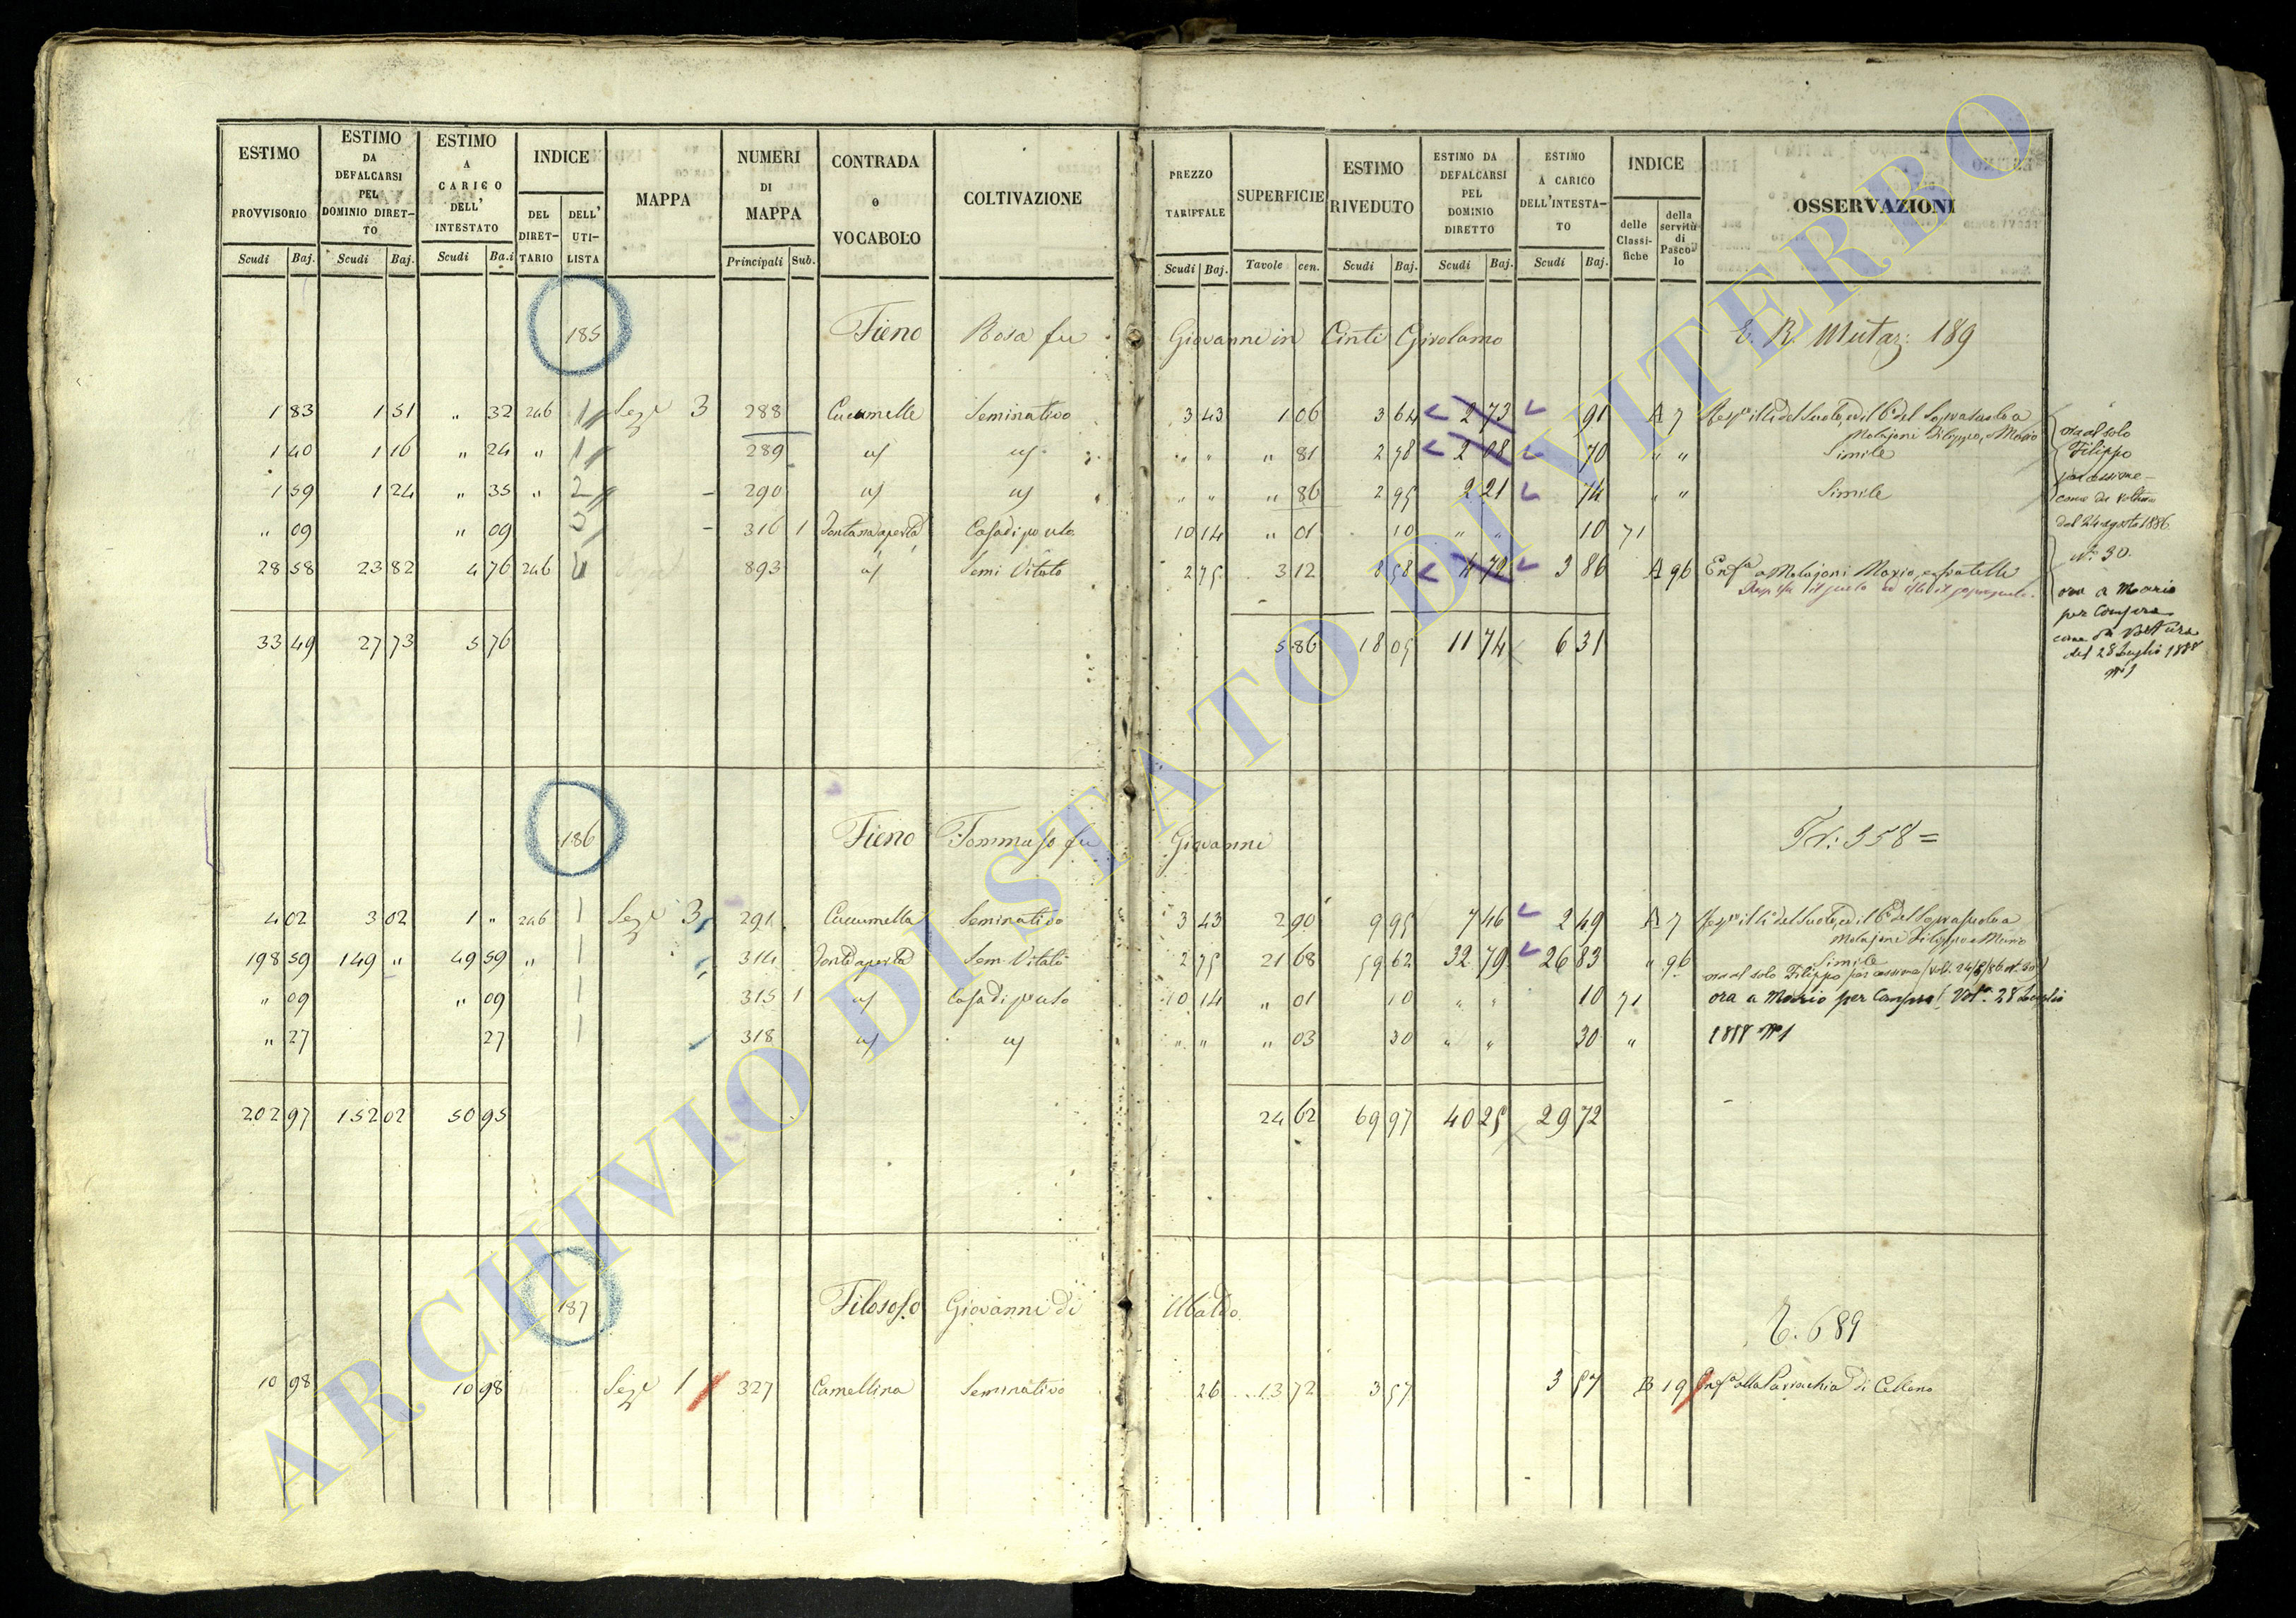 ESTIMO PROVVISORIO Scudi Baj.
ESTIMO DA DEFALCARSI PEL DOMINIO DIRETTO Scudi Baj.
ESTIMO A CARICO DELL' INTESTATO Scudi Ba.i
INDICE DEL DIRETTARIO DELL' UTILISTA
MAPPA
NUMERI DI MAPPA Principali Sub.
CONTRADA o VOCABOLO
COLTIVAZIONE
PREZZO TARIFFALE Scudi Baj.
SUPERFICIE Tavole cen.
ESTIMO RIVEDUTO Scudi Baj.
ESTIMO DA DEFALCARSI PEL DOMINIO DIRETTO Scudi Baj.
ESTIMO A CARICO DELL'INTESTATO Scudi Baj.
INDICE delle Classifiche della servitù di Pascolo
OSSERVAZIONI
185 Fieno Rosa fu Giovanni in Cinti Girolamo E. R. Mutaz: 189
1 83 1 51 " 32 246 1 Sez.e 3 288 Cucumelle Seminativo 3 43 1 06 3 64 2 73 91 A 7
Molajoni Filippo, e Mario
1 40 1 16 " 24 " 1 289 " 81 2 78 2 08 70 " " Simile
1 59 1 24 " 35 " 2 290 " " " 86 2 95 2 21 74 " " Simile
" 09 " 09 316 1 Fontana aperta Casa di 10 14 " 01 10 " " 10 71
28 58 23 82 4 76 246 893 Semi Vitato 2 75 3 12 8 58 4 72 3 86 A 96 Enf.a a Molajoni Mario, e fratelli
33 49 27 73 5 76 5 86 18 05 11 74 6 31
ora al solo
Filippo
per cessione
come da voltura
del 24 agosto 1886
N.° 30.
ora a Mario
per Compra
come da Voltura
del 28 Luglio 1888
N° 1
186 Fieno Tommaso fu Giovanni Tr: 358 =
4 02 3 02 1 " 246 1 Sez.e 3 291 Cucumella Seminativo 3 43 2 90 9 95 7 46 2 49 A 7
Molajoni Filippo e Mario
198 59 149 " 49 59 " 1 314 Font.a aperta Sem. Vitato 2 75 21 68 59 62 32 79 26 83 " 96 Simile
ora al solo Filippo per cessione (Volt. 24/8/86 N. 30)
" 09 " 09 1 315 1 Casa di 10 14 " 01 10 " " 10 71 ora a Mario per Compra (Volt.a 28 Luglio
" 27 27 1 318 " " " 03 30 " " 30 " 1888 N° 1
202 97 152 02 50 95 24 62 69 97 40 25 29 72
187 Filosofo Giovanni di Ubaldo
T. 689
10 98 10 98 Sez.e 1 327 Camellina Seminativo 26 13 72 3 57 3 57 B 19 Enf.a alla Parrochia di Celleno
ARCHIVIO DI STATO DI VITERBO